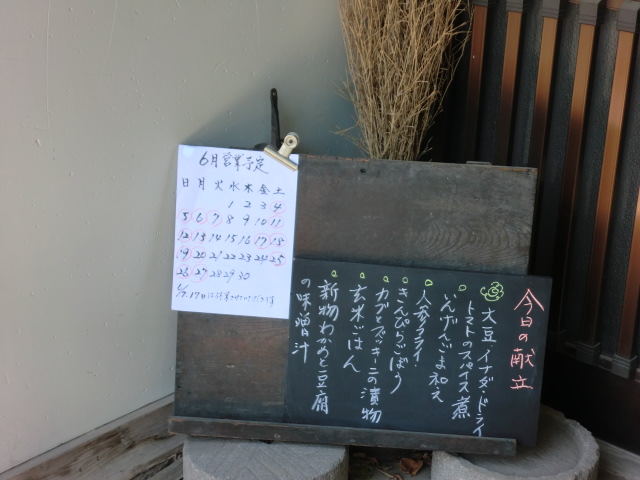 6月営業予定
日 月 火 水 木 金 土
1 2 3 4
5 6 7 8 9 10 11
12 13 14 15 16 17 18
19 20 21 22 23 24 25
26 27 28 29 30
今日の献立
大豆 イナダ ドライ
トマトのスパイス煮
いんげんごま和え
人参フライ
きんぴらごぼう
カブとズッキーニの漬物
玄米ごはん
新物わかめと豆腐
の味噌汁